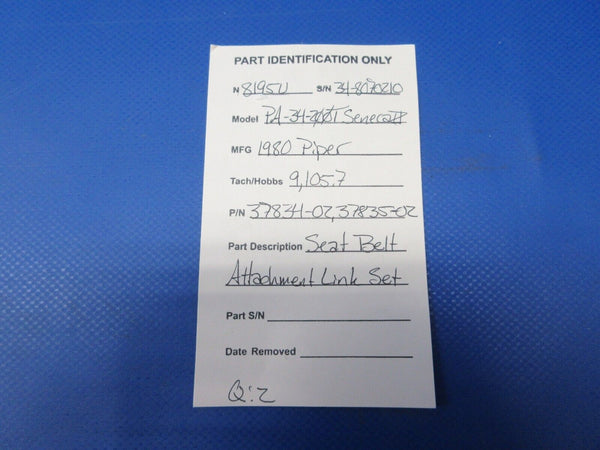 PART IDENTIFICATION ONLY
N 8195U S/N 34-8070210
Model PA-34-200T Seneca II
MFG 1980 Piper
Tach/Hobbs 9,105.7
P/N 37834-02, 37835-02
Part Description Seat Belt
Attachment Link Set
Part S/N
Date Removed
Q:2